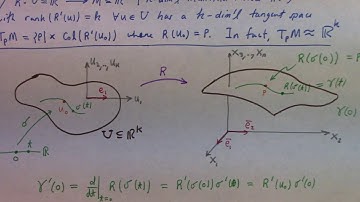 with rank (R'(u)) = k ∀u∈U has a k-dim'l tangent space
T_pM = {p} × Col(R'(u₀)) where R(u₀) = p. In fact, T_pM ≈ ℝᵏ
u₂, ..., uₖ
σ
u₀
σ(t)
e₁
u₁
U ⊆ ℝᵏ
0
t
ℝ
R
x₃, ..., xₙ
R(σ(0)) = p
p
R(σ(t)) = γ(t)
γ(0)
e₂
e₁
x₂
x₁
γ'(0) = d/dt|ₜ₌₀ R(σ(t)) = R'(σ(0)) σ'(t) = R'(u₀) σ'(0)